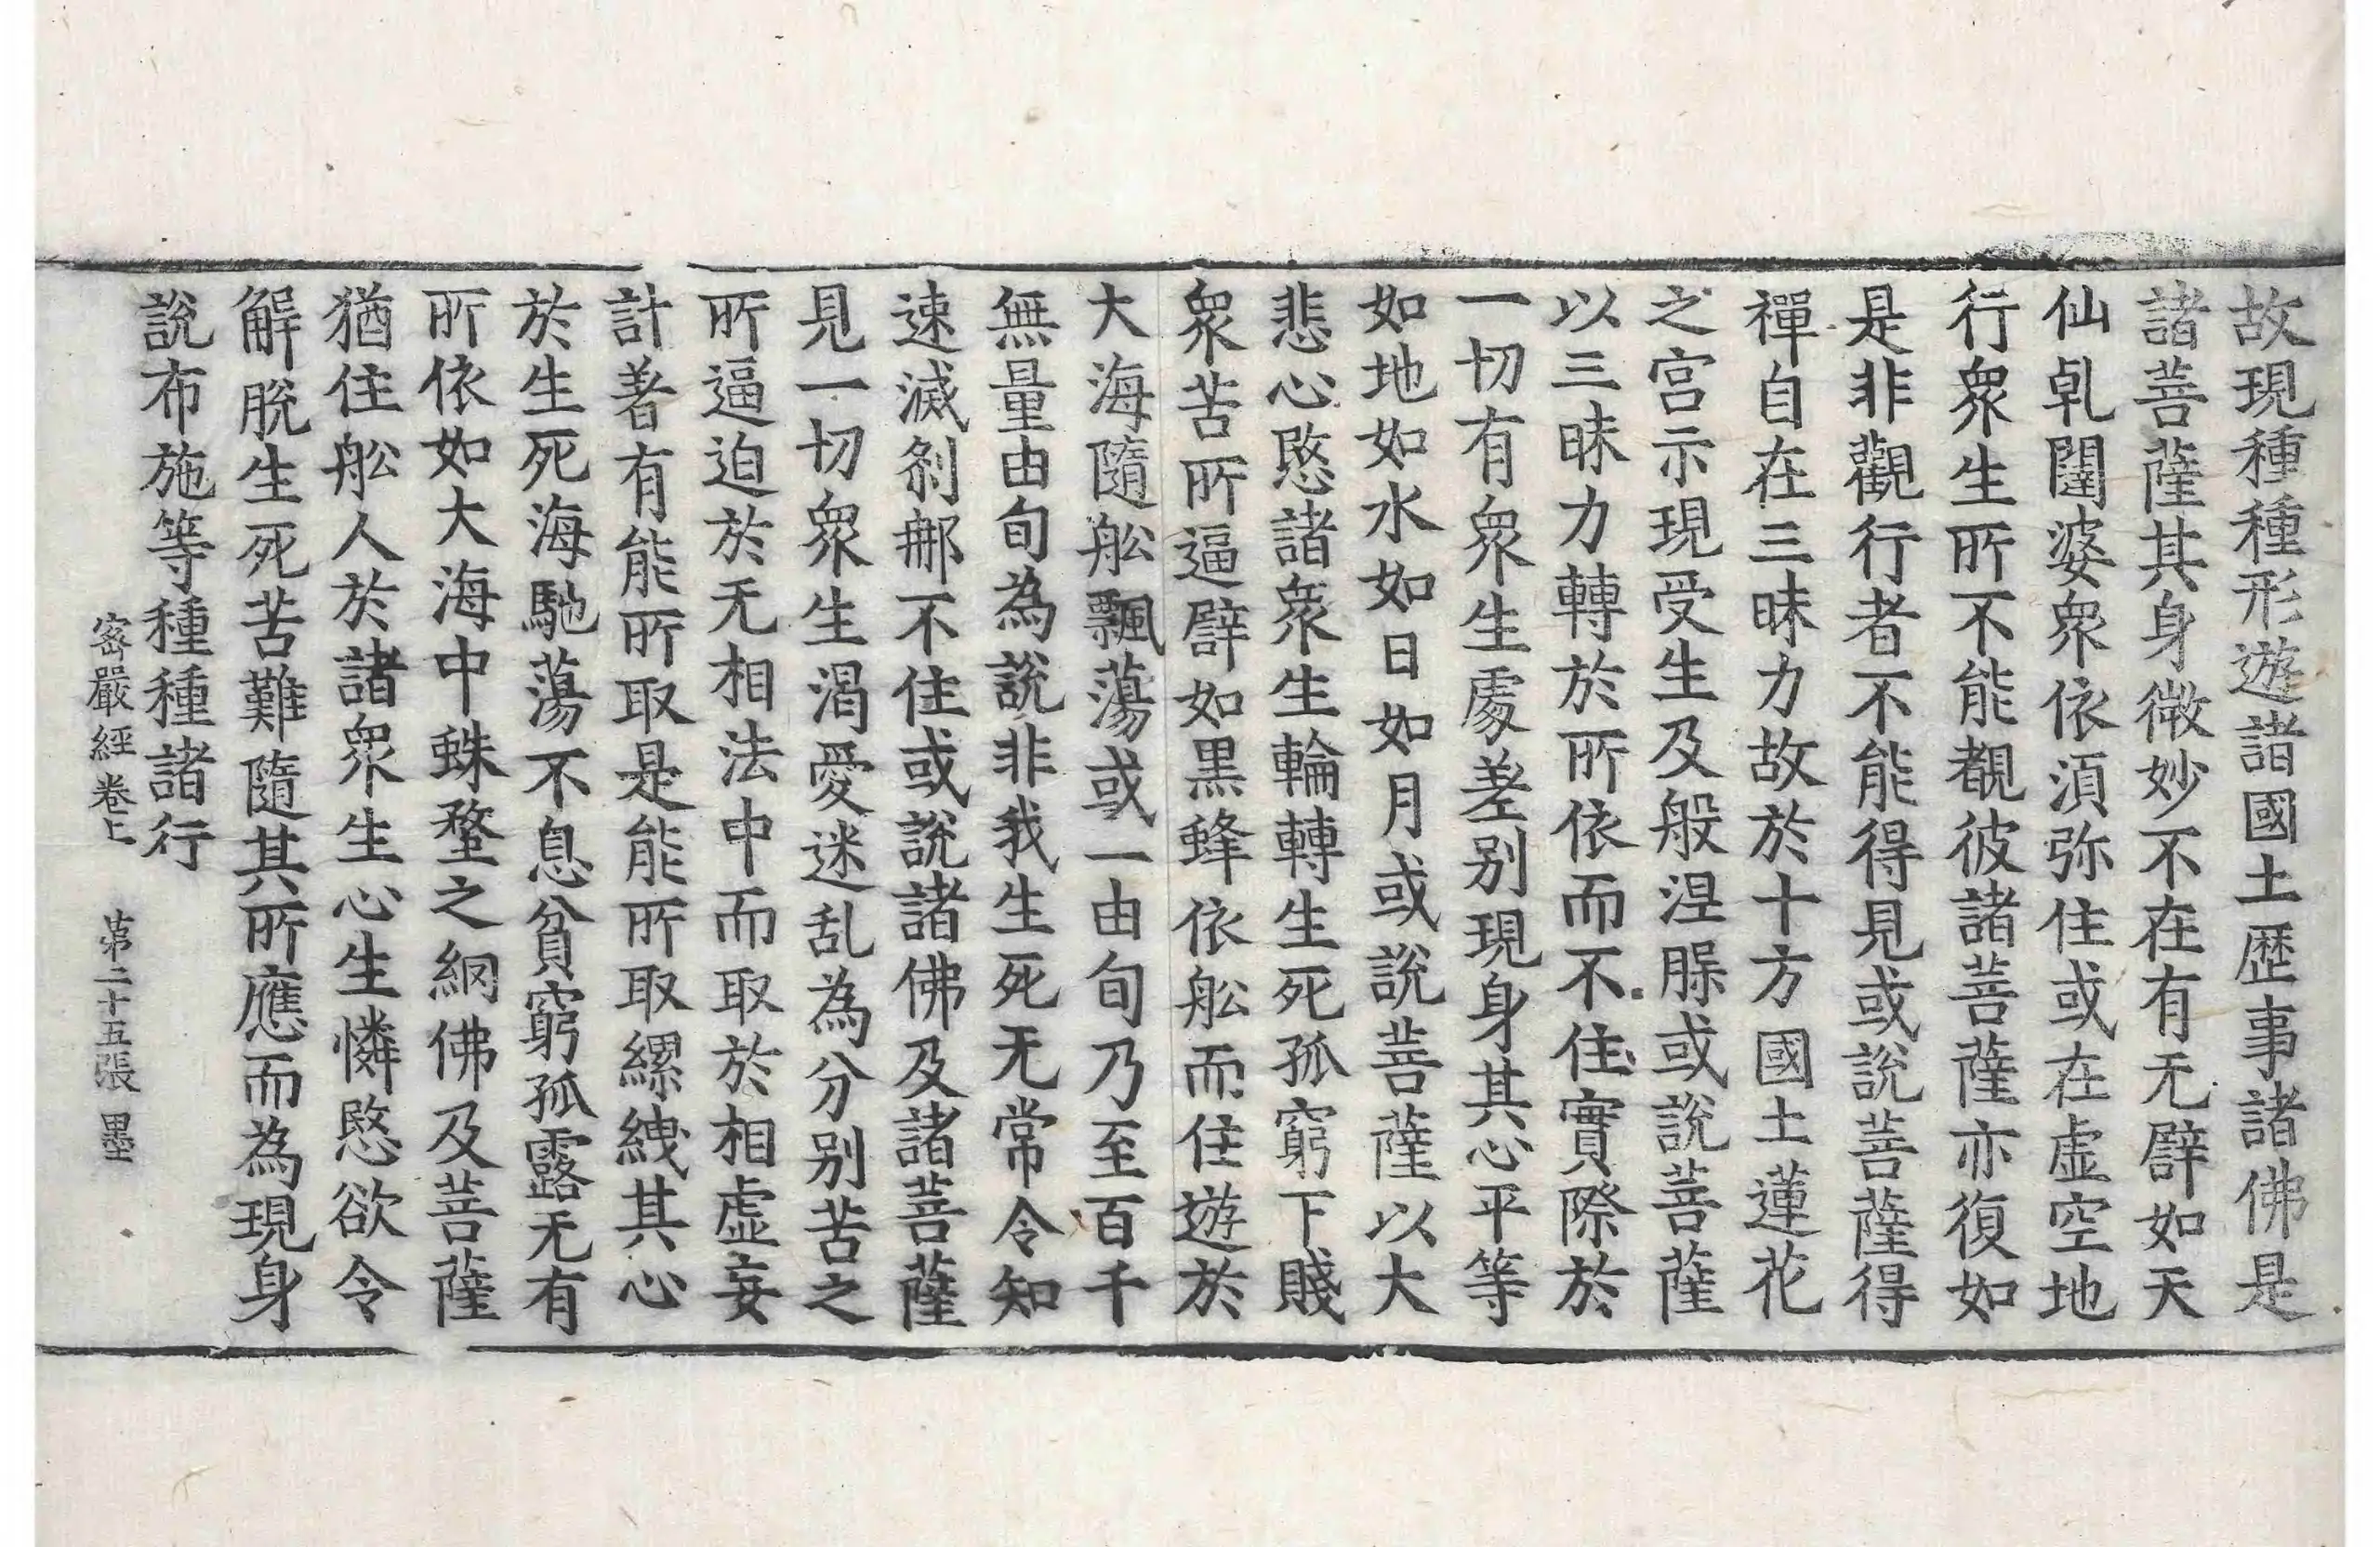 故現種種形遊諸國土歷事諸佛是
諸菩薩其身微妙不在有无譬如天
仙乹闥婆衆依湏弥住或在虛空地
行衆生所不能覩彼諸菩薩亦復如
是非觀行者不能得見或說菩薩得
禪自在三昧力故於十方國土蓮花
之宮示現受生及般涅槃或說菩薩
以三昧力轉於所依而不住實際於
一切有衆生處差别現身其心平等
如地如水如日如月或說菩薩以大
悲心愍諸衆生輪轉生死孤窮下賤
衆苦所逼譬如黒蜂依舩而住遊於
大海隨舩飄蕩或一由旬乃至百千
無量由旬為說非我生死无常令知
速滅刹那不住或說諸佛及諸菩薩
見一切衆生渴愛迷乱為分别苦之
所逼迫於无相法中而取於相虛妄
計著有能所取是能所取縲紲其心
於生死海馳蕩不息貧窮孤露无有
所依如大海中蛛蝥之網佛及菩薩
猶住舩人於諸衆生心生憐愍欲令
解脫生死苦難隨其所應而為現身
說布施等種種諸行
密嚴經卷上 苐二十五張 墨